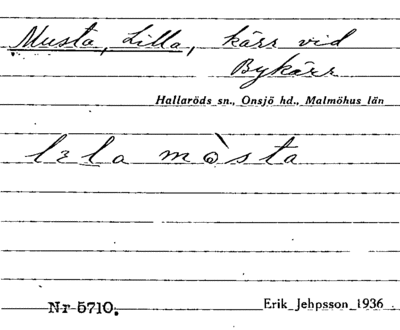 Musta, Lilla, kärr vid
Bykärr
Hallaröds sn., Onsjö hd., Malmöhus län
lɛla mòsta
Nr 5710.
Erik Jehpsson 1936